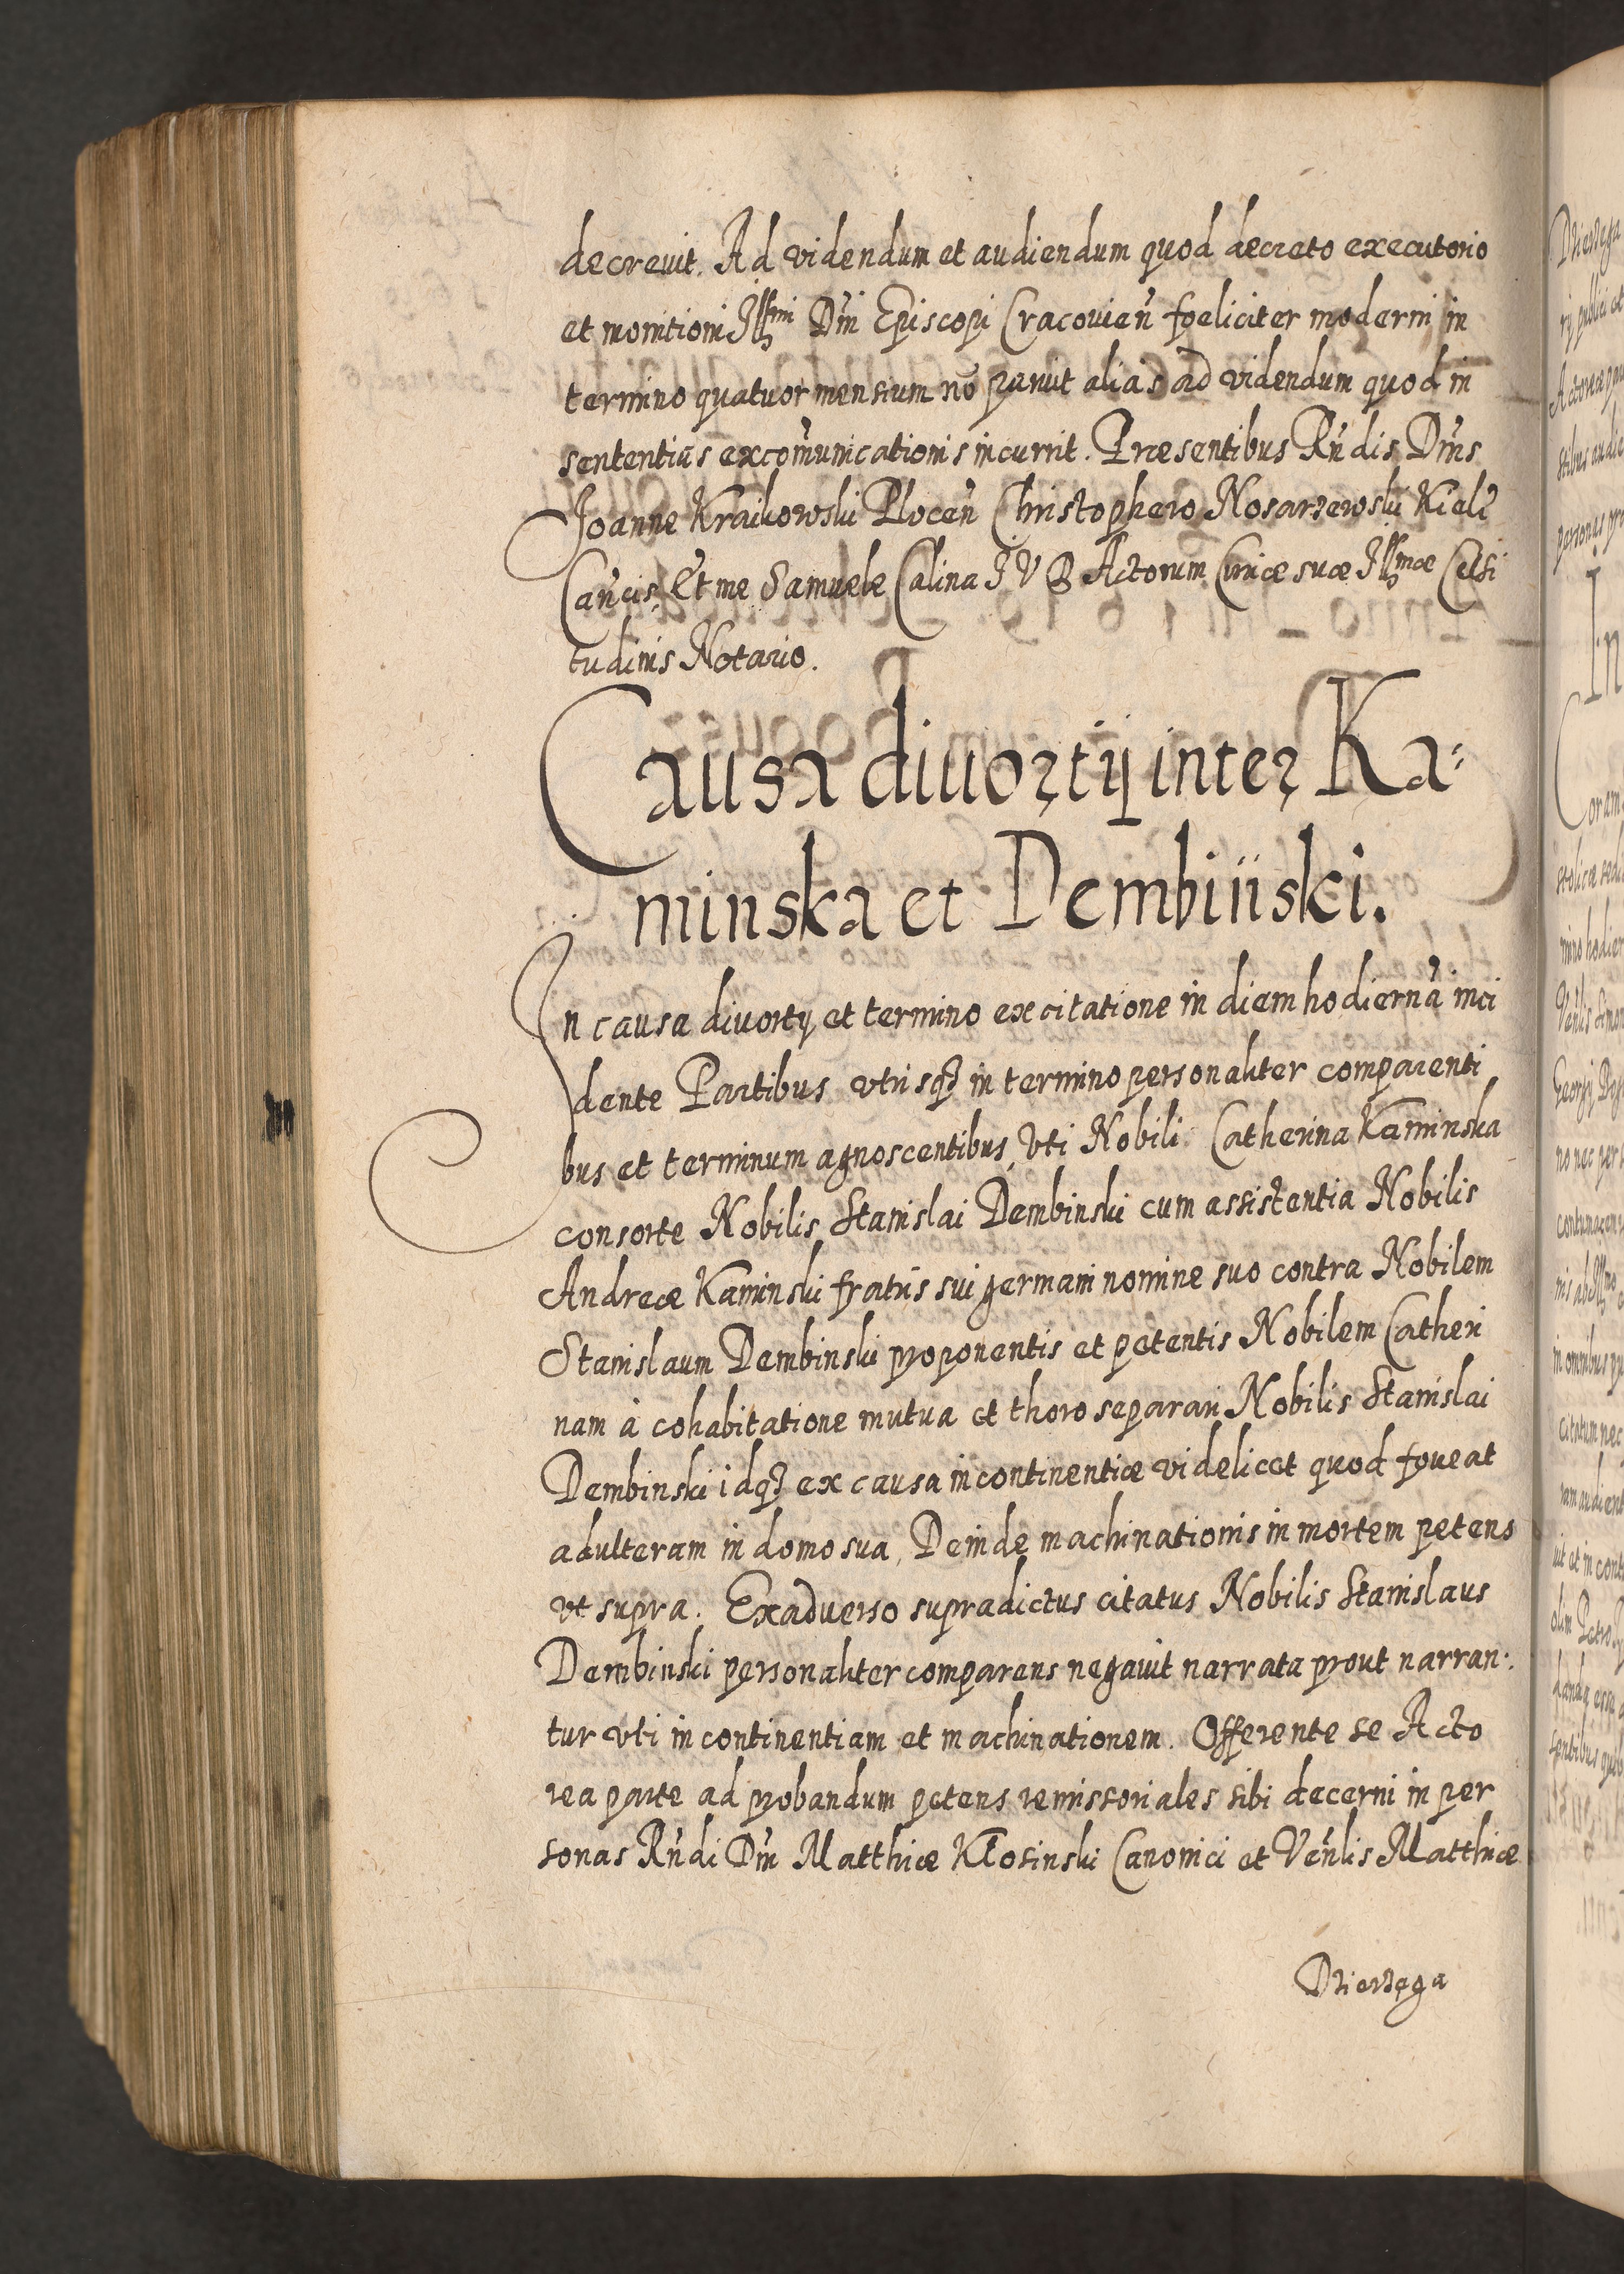 decrevit. Ad videndum et audiendum quod decreto executorio
et monitioni Illmi Dni Episcopi Cracovien foeliciter moderni in
termino quatuor mensium nō paruit alias ad videndum quod in
sententias excom̃unicationis incurrit. Præsentibus Rñdis Dnis
Joanne Kraikowski Plocen̄ Christophero Nosarzewski Kiel̄
Cañcis, Et me Samuele Calina J V D Actorum Curiæ suæ Illmæ Celsi
tudinis Notario.
Causa diuortij inter Ka-
minska et Dembinski.
In causa diuortij et termino ex citatione in diem hodiernā inci
dente Partibus vtrisq3 in termino personaliter comparenti
bus et terminum agnoscentibus, vti Nobili Catherina Kaminska
consorte Nobilis Stanislai Dembinski cum assistentia Nobilis
Andreæ Kaminski fratris sui germani nomine suo contra Nobilem
Stanislaum Dembinski proponentis et petentis Nobilem Catheri
nam à cohabitatione mutua et thoro separari Nobilis Stanislai
Dembinski idq3 ex causa incontinentiæ videlicet quod foueat
adulteram in domo sua, Deinde machinationis in mortem petens
vt supra. Exaduerso supradictus citatus Nobilis Stanislaus
Dembinski personaliter comparens negauit narrata prout narran-
tur vti incontinentiam et machinationem. Offerente se Acto
rea parte ad probandum petens remissoriales sibi decerni in per
sonas Rñdi Dni Matthiæ Kłosinski Canonici et Vēnlis Matthiæ
Dzierzęga